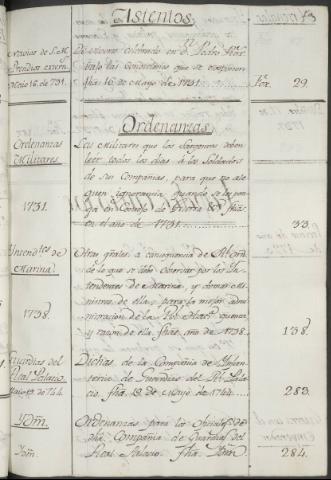 13
Asientos
Gracias de S. M.
Presidios extern.s
Maio 16. de 731.
De viveres celebrado en Dn. Pedro
baxo las Condiciones que se contienen
fha 16 de Mayo de 1731.
For. 29.
Ordenanzas
Ordenanzas
Militares
1731.
Las Militares que los Sargentos deben
leer todos los dias à los Soldados
de sus Compañias, para que no ale
guen ignorancia quando se les pon
ga en Consejo de Guerra &. fhas
en el año de 1731.
33.
Yntendtes de
Marina.
1738.
Otras grales à consequencia de
de lo que se debe observar por los Yn
tendentes de Marina, y demas Mi
nistros de ella, para la mejor admi
nistracion de la Rl. Hazda. quenta
y razon de ella, fhas. año de 1738.
138.
Guardias del
Real Palacio
Maio de 744.
Dichas, de la Compañia de Ynfan
teria de Guardias del Rl. Pala
cio. fha. de Mayo de 1744.
283.
Ydm.
Ydm
Ordenanzas para los Oficiales de
dha. Compañia de Guardias del
Real Palacio. fha. Ydm
284.